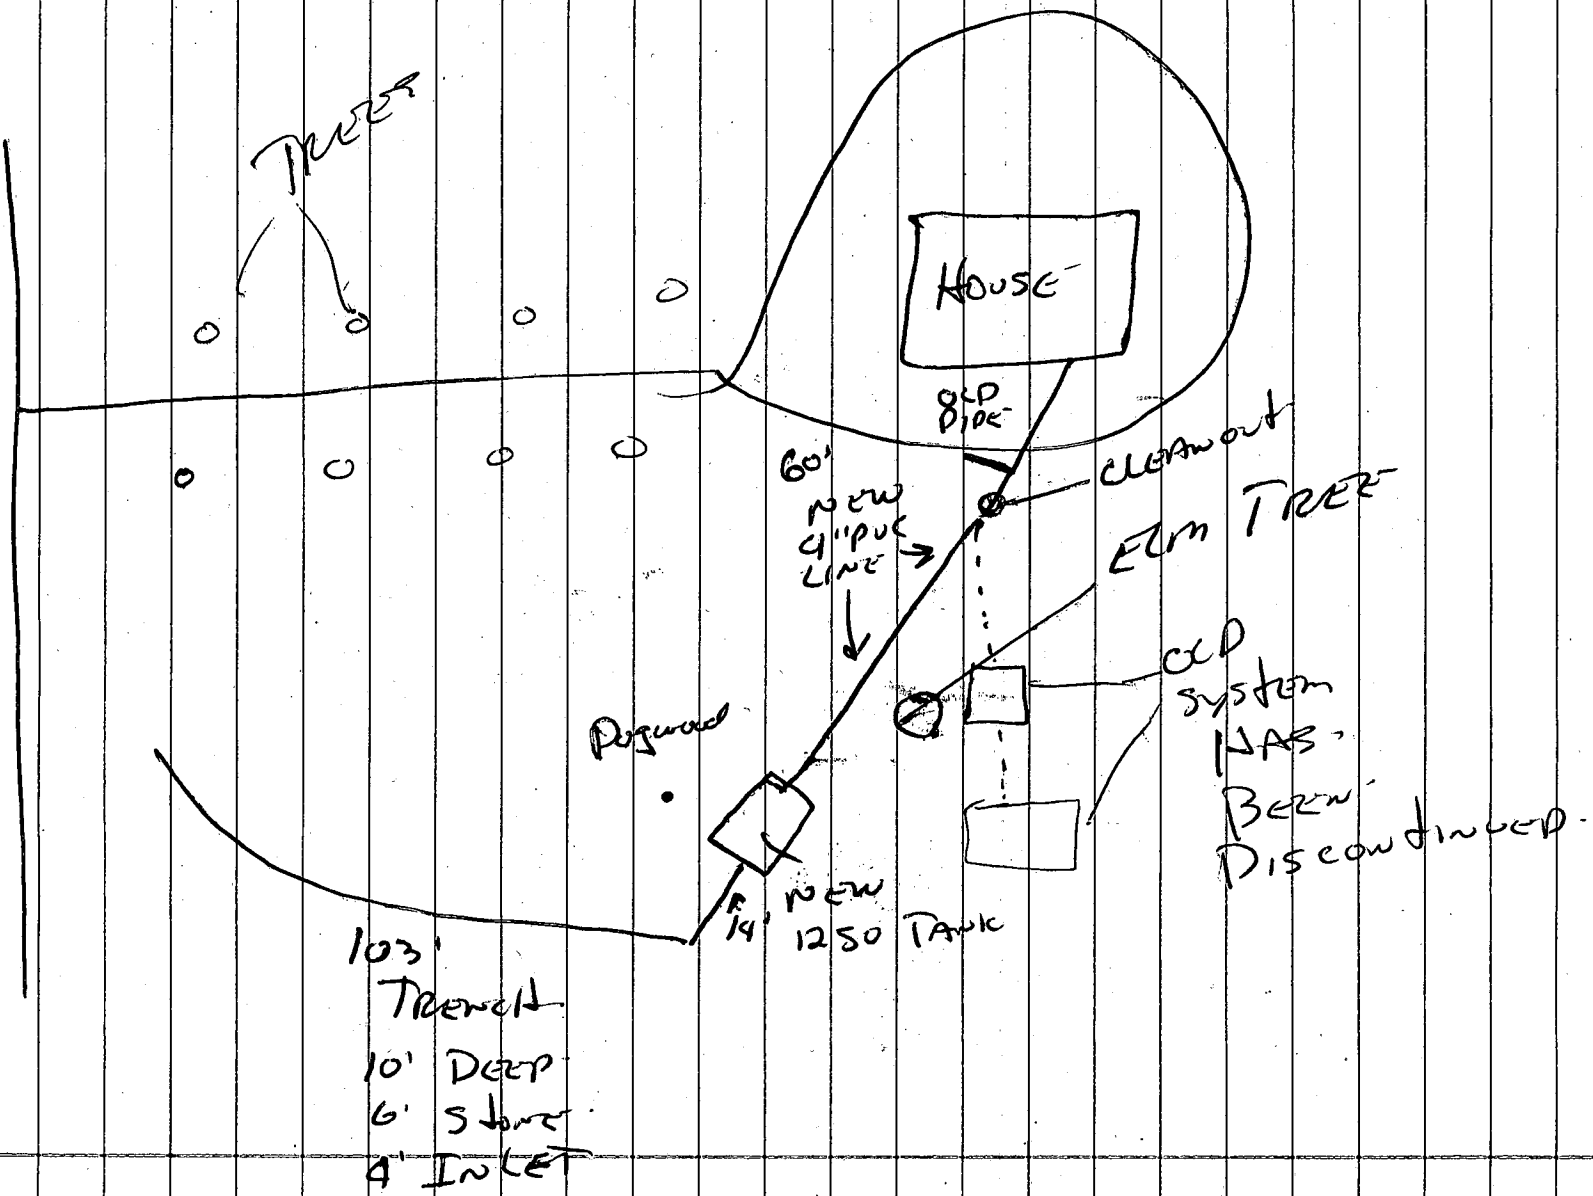 TREES
HOUSE
OLD
PIPE
60'
NEW
4" PVC
LINE
CLEANOUT
ELM TREE
OLD
SYSTEM
HAS
BEEN
DISCONTINUED.
Dogwood
14'
NEW
1250 TANK
103'
TRENCH
10' DEEP
6' STONE
4' INLET